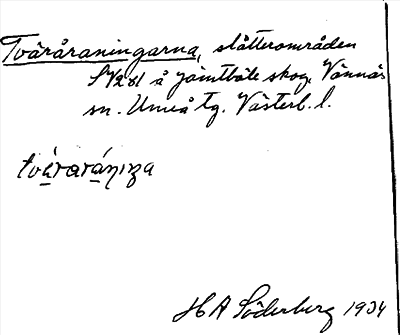 Tväråraningarna, slåtterområden
på Jämtböle skog, Vännäs
sn. Umeå tg. Västerb. l.
tvárarániŋa
H A Söderberg 1934